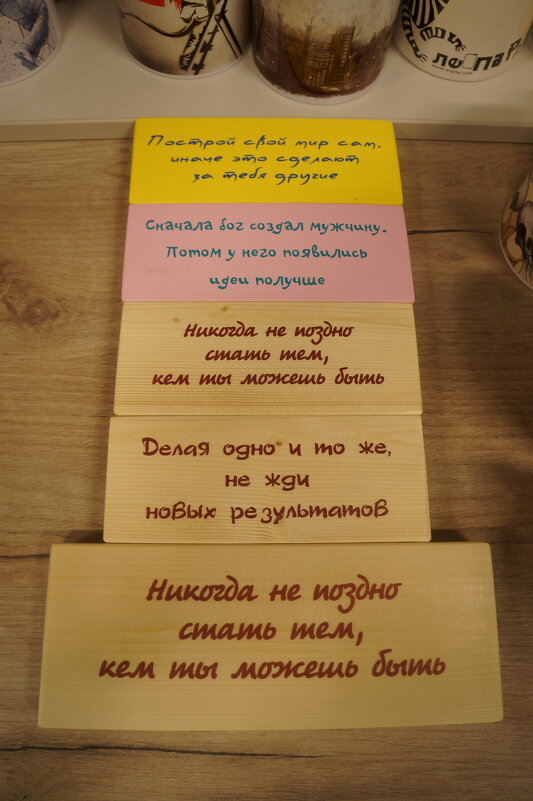 Построй свой мир сам,
иначе это сделают
за тебя другие
Сначала бог создал мужчину.
Потом у него появились
идеи получше
Никогда не поздно
стать тем,
кем ты можешь быть
Делая одно и то же,
не жди
новых результатов
Никогда не поздно
стать тем,
кем ты можешь быть